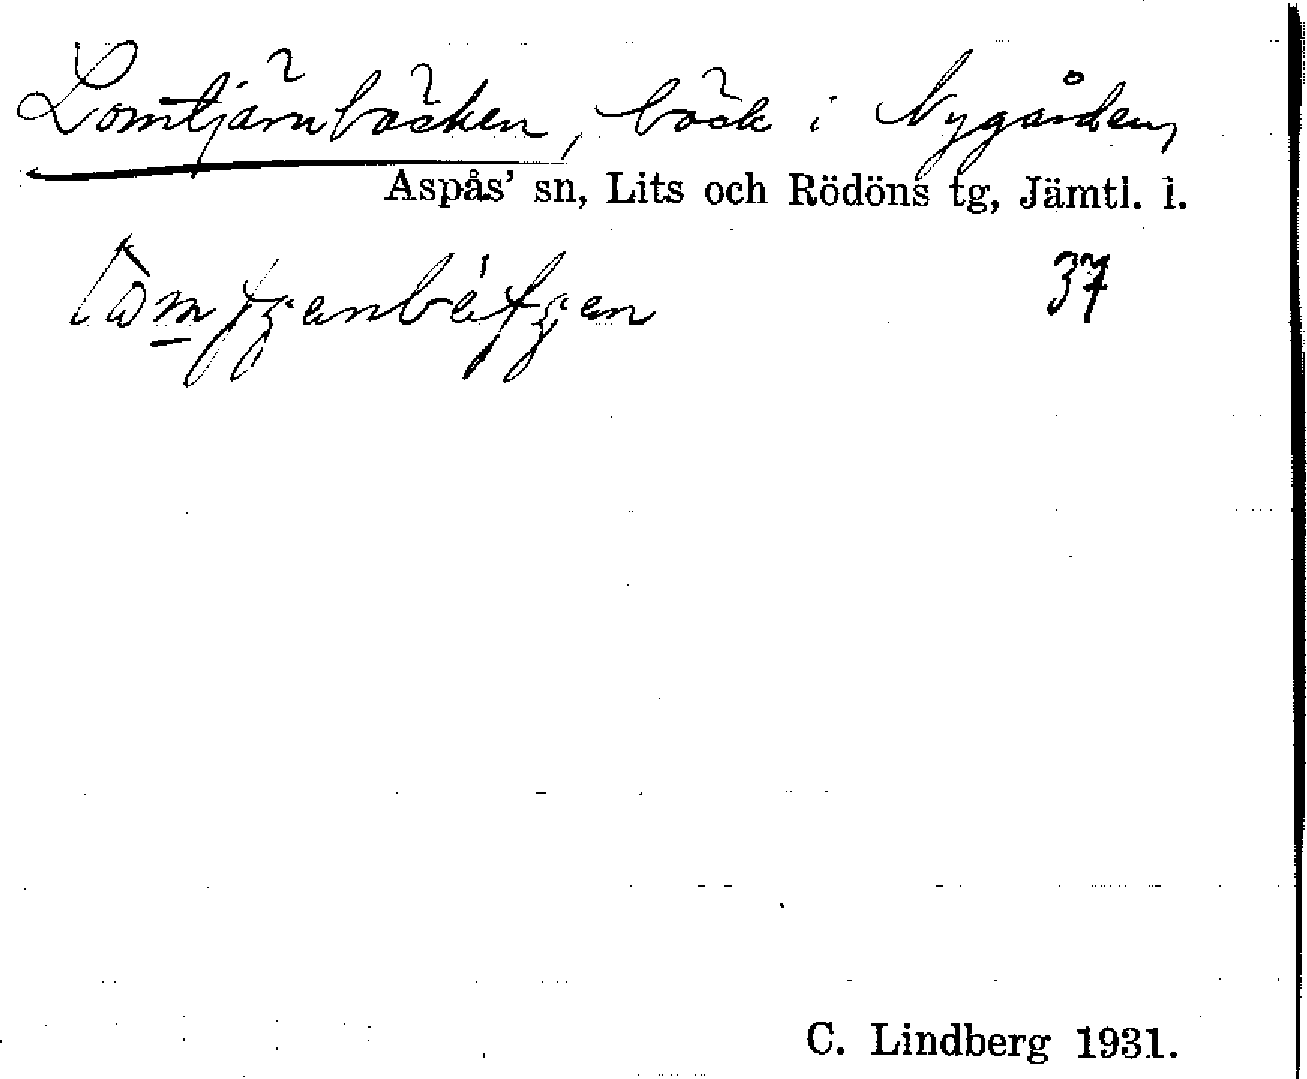 Lomtjärnbäcken, bäck i Nygården,
Aspås' sn, Lits och Rödöns tg, Jämtl. l.
37
C. Lindberg 1931.